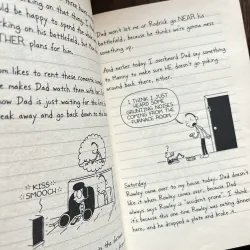 king on that thing
uld be happy to spend
ng on his battlefield, but
THER plans for him.
om likes to rent these romantic
makes Dad watch them with
now Dad is just waiting for
eak away and go back down to
KISS
SMOOCH
Dad won't let me or Rodrick go NEAR his
battlefield, because he thinks we're gonna mess
something up.
And earlier today I overheard Dad say something
to Manny to make sure HE doesn't go poking
around back there, either.
I THINK I
JUST HEARD
SOME
HAUNTING NOISES
COMING FROM THE
FURNACE ROOM.
Saturday
Rowley came over to my house today. Dad doesn't
like it when Rowley comes over, because Dad
always says Rowley is "accident prone." I think
it's because this one time Rowley was eating dinner
here, and he dropped a plate and broke it.